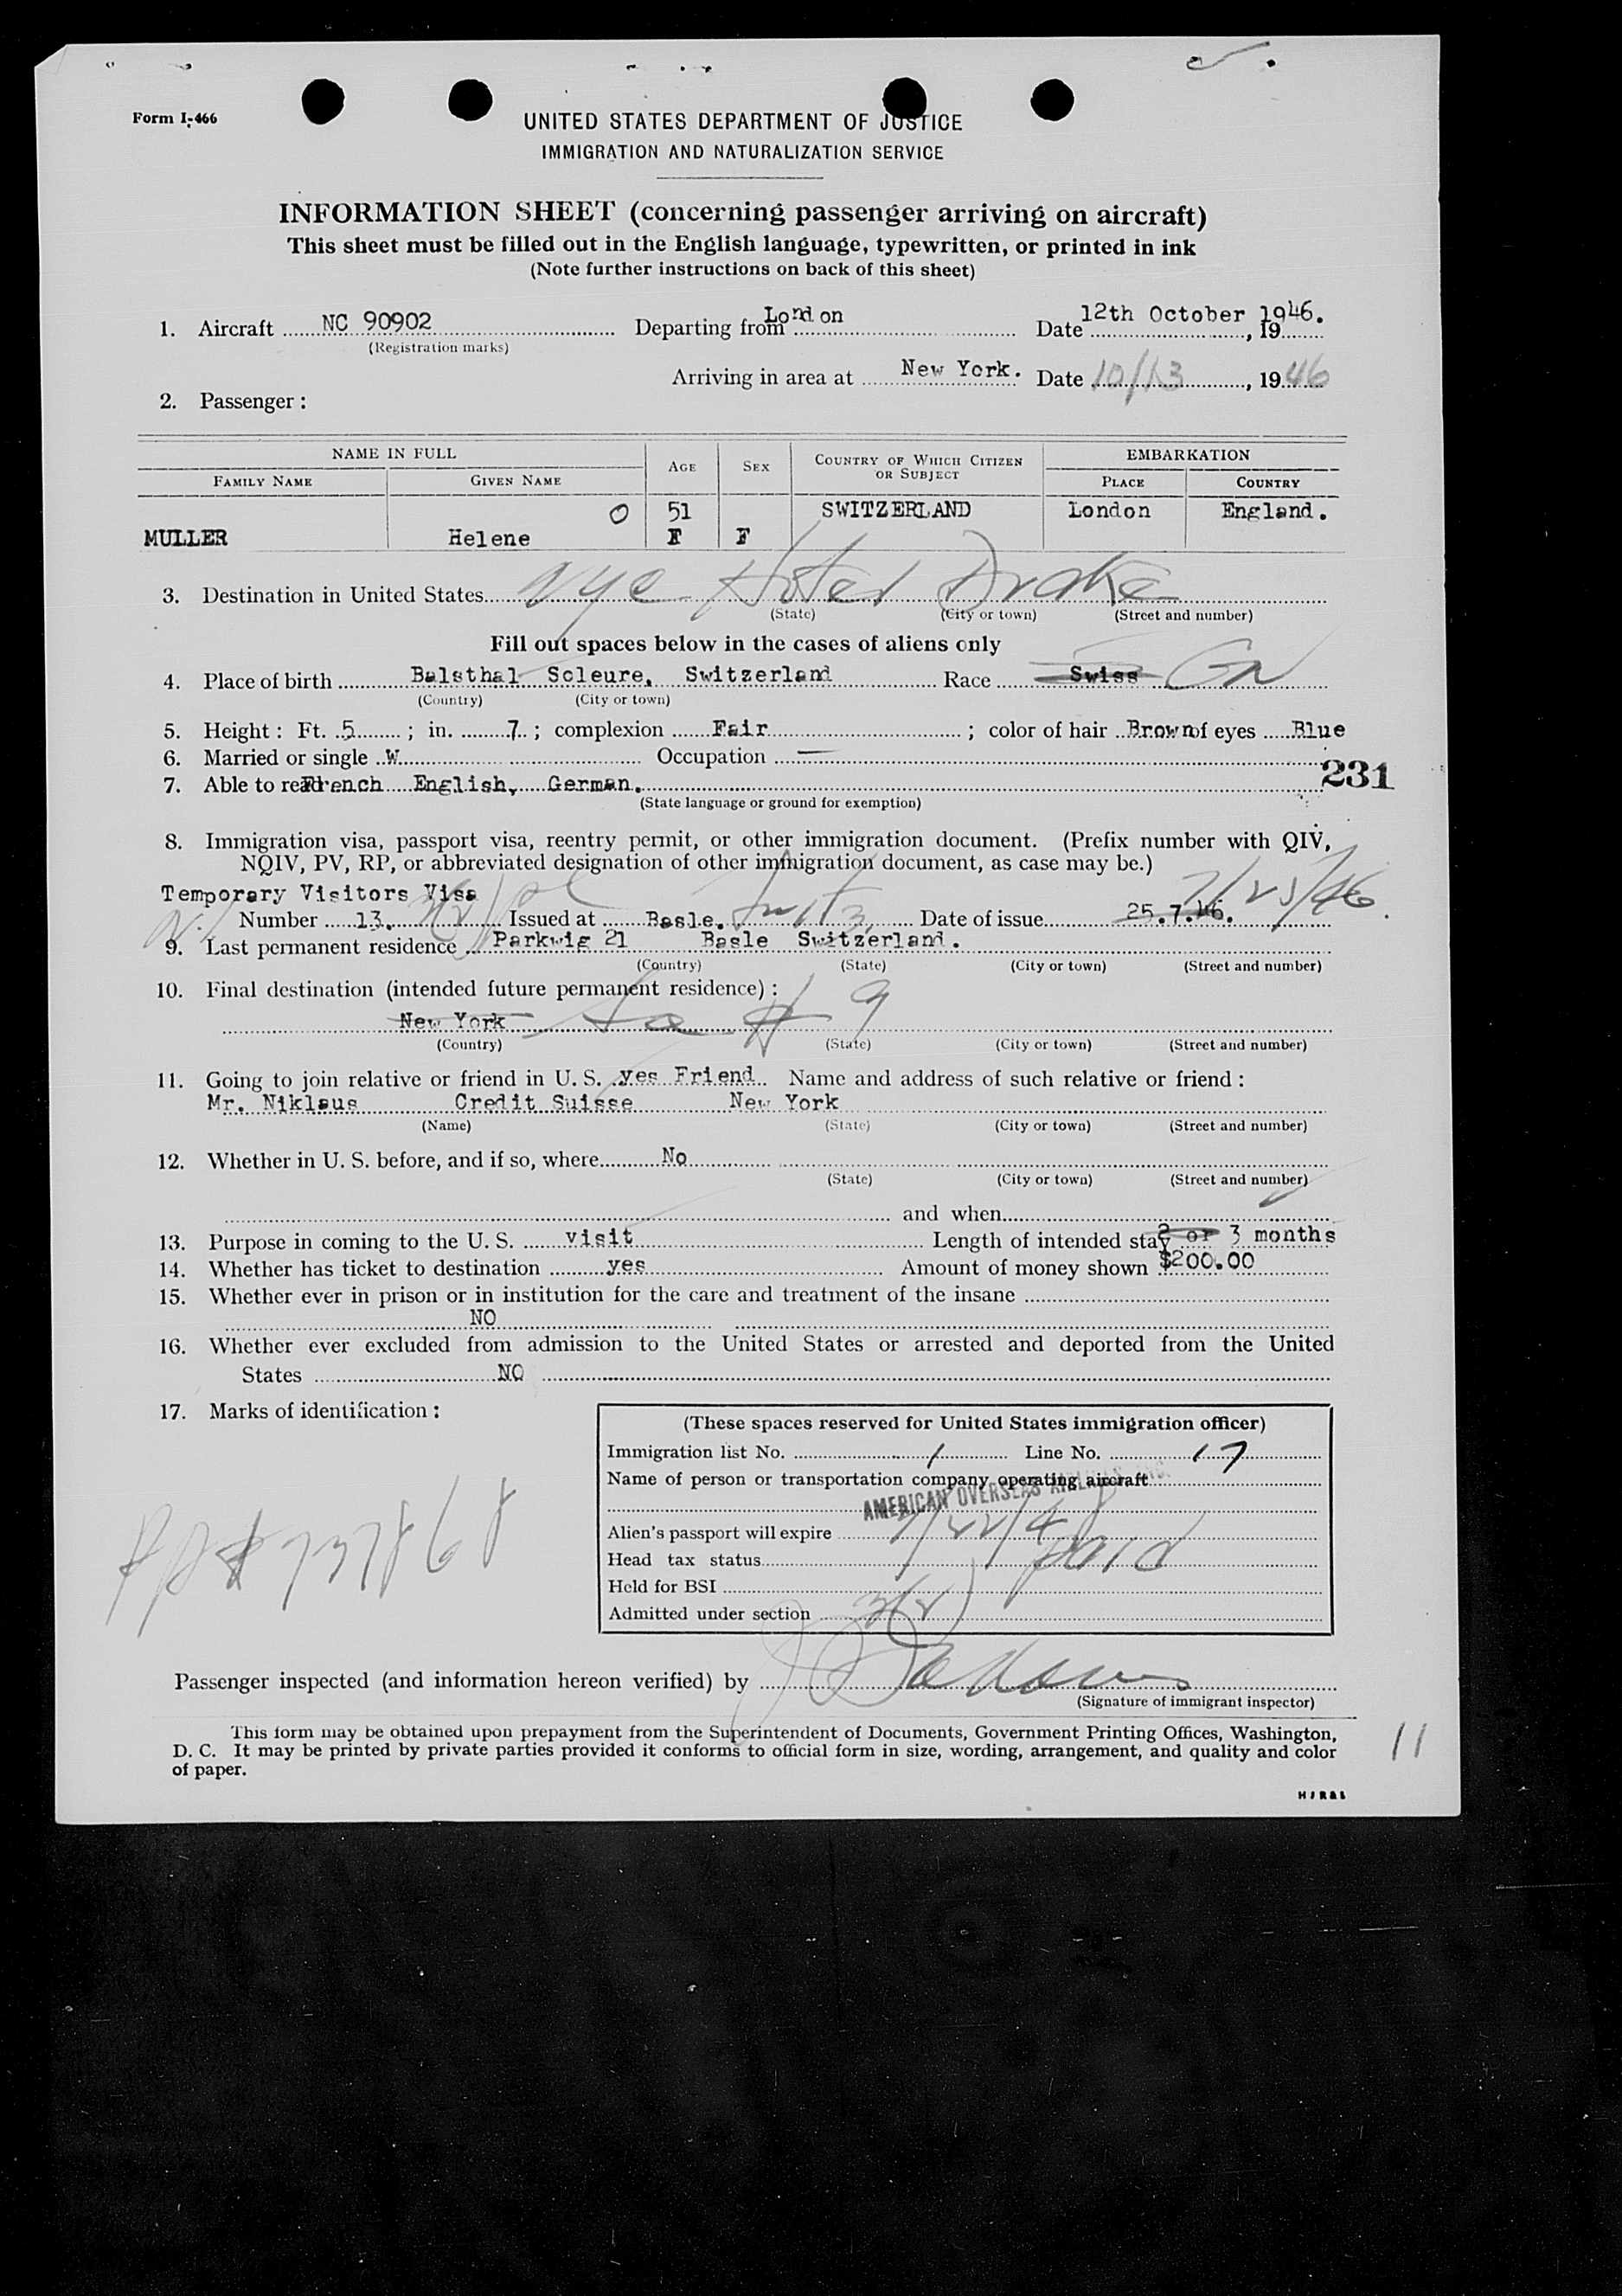 Form I-466
UNITED STATES DEPARTMENT OF JUSTICE
IMMIGRATION AND NATURALIZATION SERVICE
INFORMATION SHEET (concerning passenger arriving on aircraft)
This sheet must be filled out in the English language, typewritten, or printed in ink
(Note further instructions on back of this sheet)
1. Aircraft NC 90902 Departing from London Date 12th October 1946. , 19
(Registration marks)
Arriving in area at New York. Date 10/13, 1946
2. Passenger :
NAME IN FULL AGE SEX COUNTRY OF WHICH CITIZEN OR SUBJECT EMBARKATION
FAMILY NAME GIVEN NAME PLACE COUNTRY
0 51 SWITZERLAND London England.
MULLER Helene F F
3. Destination in United States NYC Hotel Drake
(State) (City or town) (Street and number)
Fill out spaces below in the cases of aliens only
4. Place of birth Balsthal Soleure, Switzerland Race Swiss
(Country) (City or town)
5. Height : Ft. 5 ; in. 7 ; complexion Fair ; color of hair Brown of eyes Blue
6. Married or single W Occupation —
7. Able to read French English, German. 231
(State language or ground for exemption)
8. Immigration visa, passport visa, reentry permit, or other immigration document. (Prefix number with QIV,
NQIV, PV, RP, or abbreviated designation of other immigration document, as case may be.)
Temporary Visitors Visa 7/25/46
Number 13. Issued at Basle. Date of issue 25.7.46.
9. Last permanent residence Parkwig 21 Basle Switzerland.
(Country) (State) (City or town) (Street and number)
10. Final destination (intended future permanent residence) :
New York # 9
(Country) (State) (City or town) (Street and number)
11. Going to join relative or friend in U. S. yes Friend Name and address of such relative or friend :
Mr. Niklaus Credit Suisse New York
(Name) (State) (City or town) (Street and number)
12. Whether in U. S. before, and if so, where No
(State) (City or town) (Street and number)
and when
13. Purpose in coming to the U. S. visit Length of intended stay 2 or 3 months
14. Whether has ticket to destination yes Amount of money shown $200.00
15. Whether ever in prison or in institution for the care and treatment of the insane
NO
16. Whether ever excluded from admission to the United States or arrested and deported from the United
States NO
17. Marks of identification :
(These spaces reserved for United States immigration officer)
Immigration list No. 1 Line No. 17
Name of person or transportation company operating aircraft
AMERICAN OVERSEAS AIRLINES INC.
Alien's passport will expire
Head tax status paid
Held for BSI
Admitted under section 3(2)
Passenger inspected (and information hereon verified) by
(Signature of immigrant inspector)
This form may be obtained upon prepayment from the Superintendent of Documents, Government Printing Offices, Washington,
D. C. It may be printed by private parties provided it conforms to official form in size, wording, arrangement, and quality and color
of paper.
11